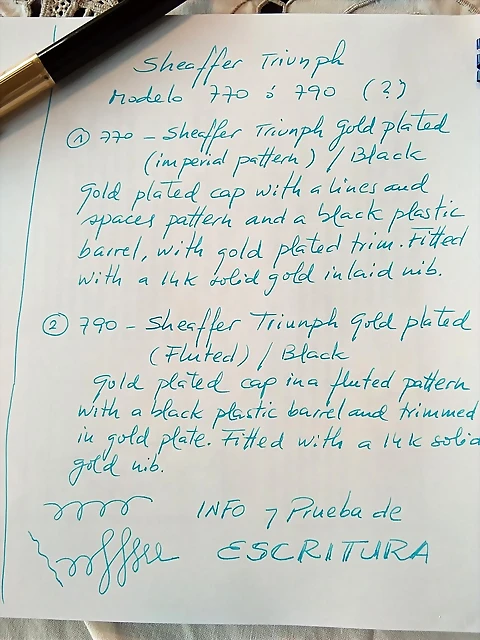 Sheaffer Triunph
Modelo 770 ó 790 (?)
① 770 - Sheaffer Triunph gold plated
(imperial pattern) / Black
gold plated cap with a lines and
spaces pattern and a black plastic
barrel, with gold plated trim. Fitted
with a 14K solid gold inlaid nib.
② 790 - Sheaffer Triunph Gold plated
(Fluted) / Black
gold plated cap in a fluted pattern
with a black plastic barrel and trimmed
in gold plate. Fitted with a 14K solid
gold nib.
INFO y Prueba de
ESCRITURA